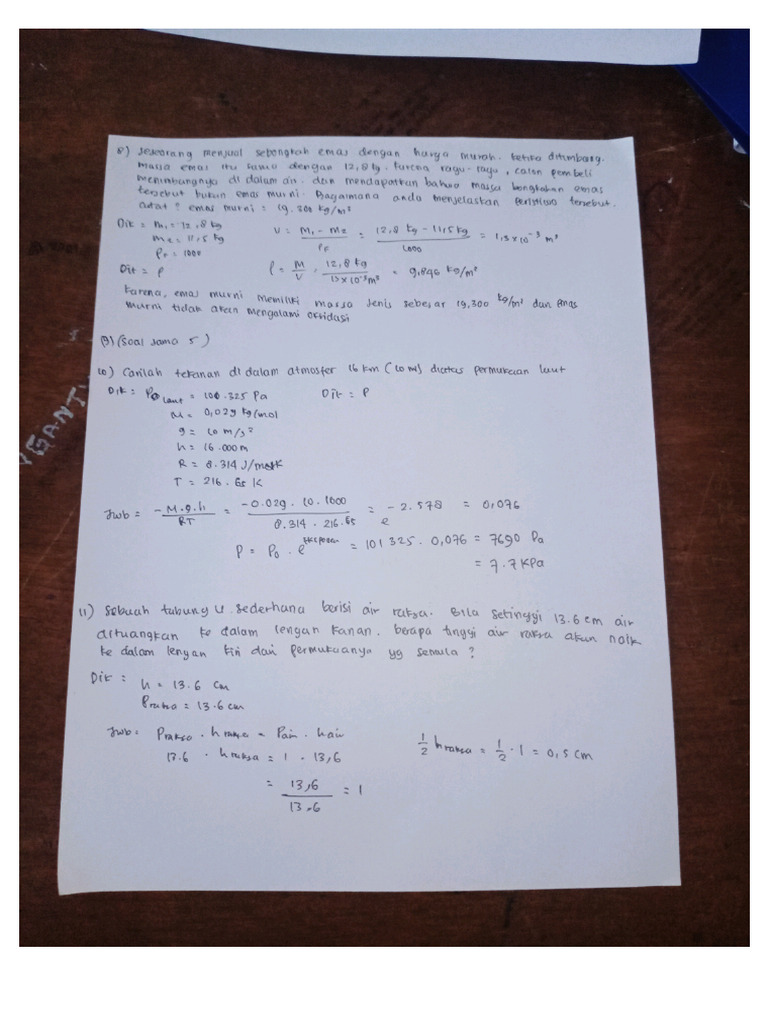 8) Seseorang menjual sebongkah emas dengan harga murah. ketika ditimbang.
massa emas itu sama dengan 12,8 kg. karena ragu-ragu, calon pembeli
menimbangnya di dalam air. dan mendapatkan bahwa massa bongkahan emas
tersebut bukan emas murni. Bagaimana anda menjelaskan peristiwa tersebut.
catat : emas murni = 19.300 kg/m³
Dik = m₁ = 12,8 kg
m₂ = 11,5 kg
ρF = 1000
V = M₁ - M₂ / ρF = 12,8 kg - 11,5 kg / 1000 = 1,3 x 10⁻³ m³
Dit = ρ
ρ = M / V = 12,8 kg / 13 x 10⁻³ m³ = 9,846 kg/m³
Karena, emas murni memiliki massa jenis sebesar 19,300 kg/m³ dan emas
murni tidak akan mengalami oksidasi
9) (Soal sama 5)
10) Carilah tekanan di dalam atmosfer 16 km (10 m) diatas permukaan laut
Dik = P₀ laut = 100.325 Pa
Dit = P
M = 0,029 kg/mol
g = 10 m/s²
h = 16.000 m
R = 8.314 J/molK
T = 216.65 K
Jwb = -M.g.h / RT = -0.029 . 10 . 1000 / 8.314 . 216.65 = e - 2.578 = 0,076
P = P₀ . e = 101 325 . 0,076 = 7690 Pa
= 7.7 KPa
11) Sebuah tabung U sederhana berisi air raksa. Bila setinggi 13.6 cm air
dituangkan ke dalam lengan kanan, berapa tinggi air raksa akan naik
ke dalam lengan kiri dari permukaanya yg semula ?
Dik = h = 13.6 cm
ρraksa = 13.6 cm
Jwb = ρraksa . h raksa = ρair . hair
13.6 . h raksa = 1 . 13,6
= 13,6 / 13.6 = 1
1/2 h raksa = 1/2 . 1 = 0,5 cm